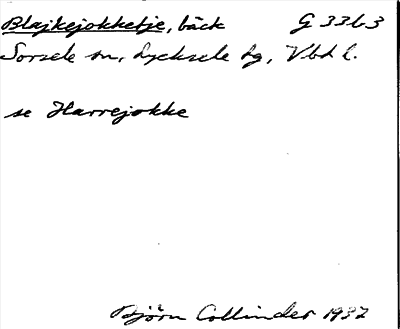 Blajkejokketje, bäck G 33b3
Sorsele sn, Lycksele lg, Vbd l.
se Harrejokke
Björn Collinder 1932